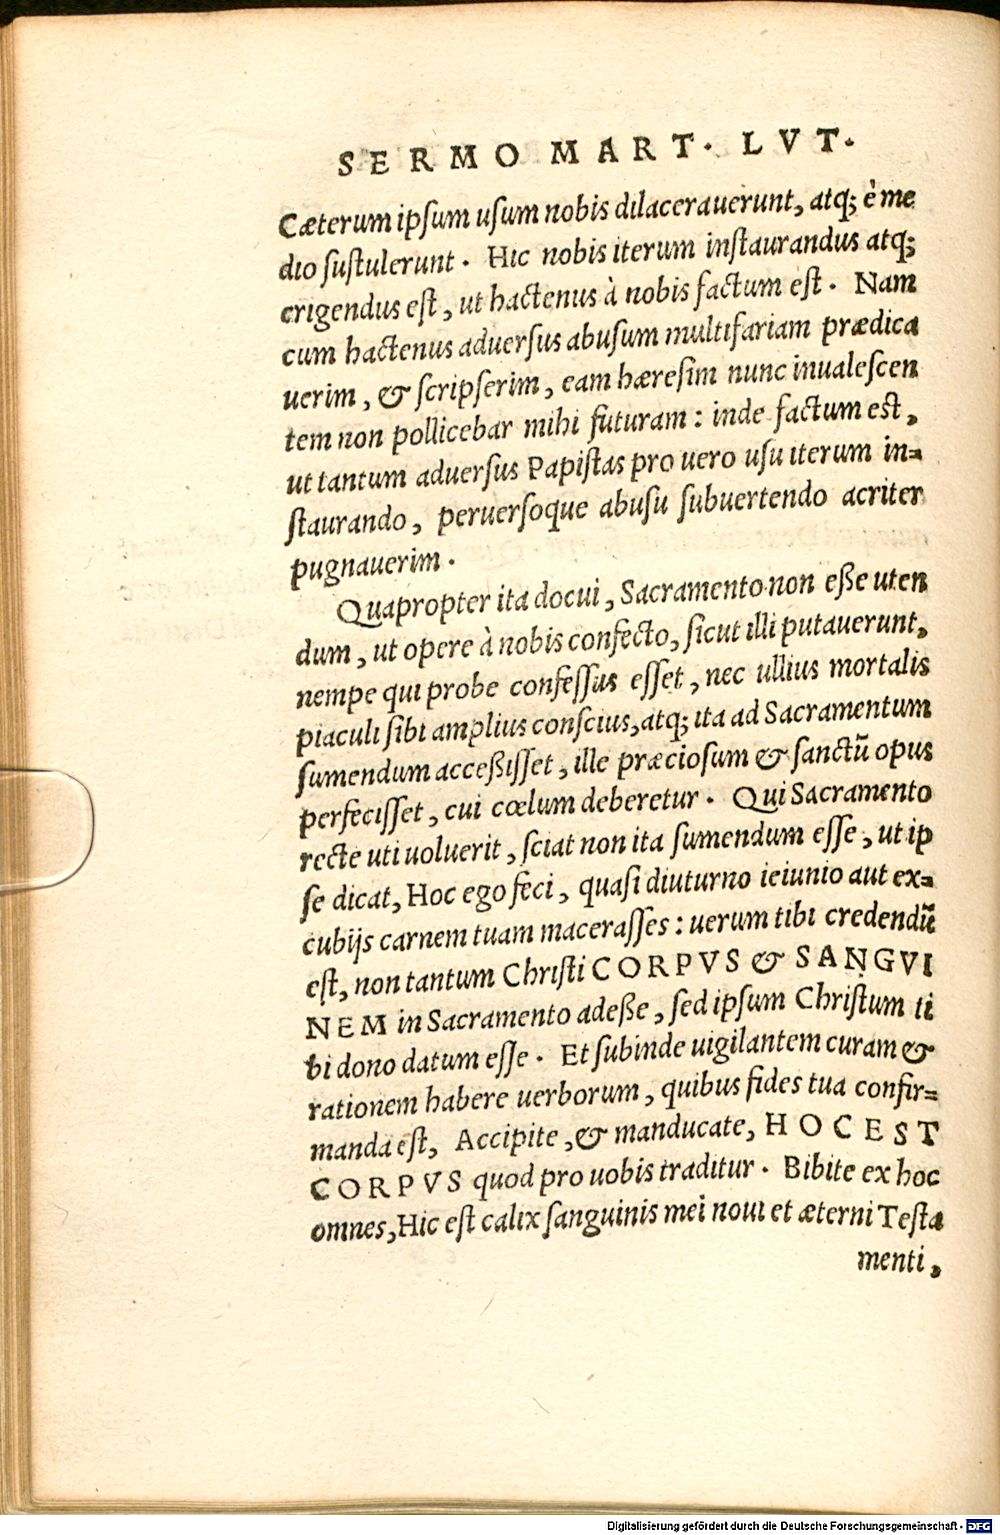 SERMO MART. LVT.
Cæterum ipsum usum nobis dilacerauerunt, atq; è me
dio sustulerunt. Hic nobis iterum instaurandus atq;
erigendus est, ut hactenus à nobis factum est. Nam
cum hactenus aduersus abusum multifariam prædica
uerim, & scripserim, eam hæresim nunc inualescen
tem non pollicebar mihi futuram: inde factum est,
ut tantum aduersus Papistas pro uero usu iterum in=
staurando, peruersoque abusu subuertendo acriter
pugnauerim.
Quapropter ita docui, Sacramento non eße uten
dum, ut opere à nobis confecto, sicut illi putauerunt,
nempe qui probe confessus esset, nec ullius mortalis
piaculi sibi amplius conscius, atq; ita ad Sacramentum
sumendum acceßisset, ille præciosum & sanctũ opus
perfecisset, cui cœlum deberetur. Qui Sacramento
recte uti uoluerit, sciat non ita sumendum esse, ut ip
se dicat, Hoc ego feci, quasi diuturno ieiunio aut ex=
cubijs carnem tuam macerasses: uerum tibi credendũ
est, non tantum Christi CORPVS & SANGVI
NEM in Sacramento adeße, sed ipsum Christum ti
bi dono datum esse. Et subinde uigilantem curam &
rationem habere uerborum, quibus fides tua confir=
manda est, Accipite, & manducate, HOC EST
CORPVS quod pro uobis traditur. Bibite ex hoc
omnes, Hic est calix sanguinis mei noui et æterni Testa
menti,
Digitalisierung gefördert durch die Deutsche Forschungsgemeinschaft - DFG